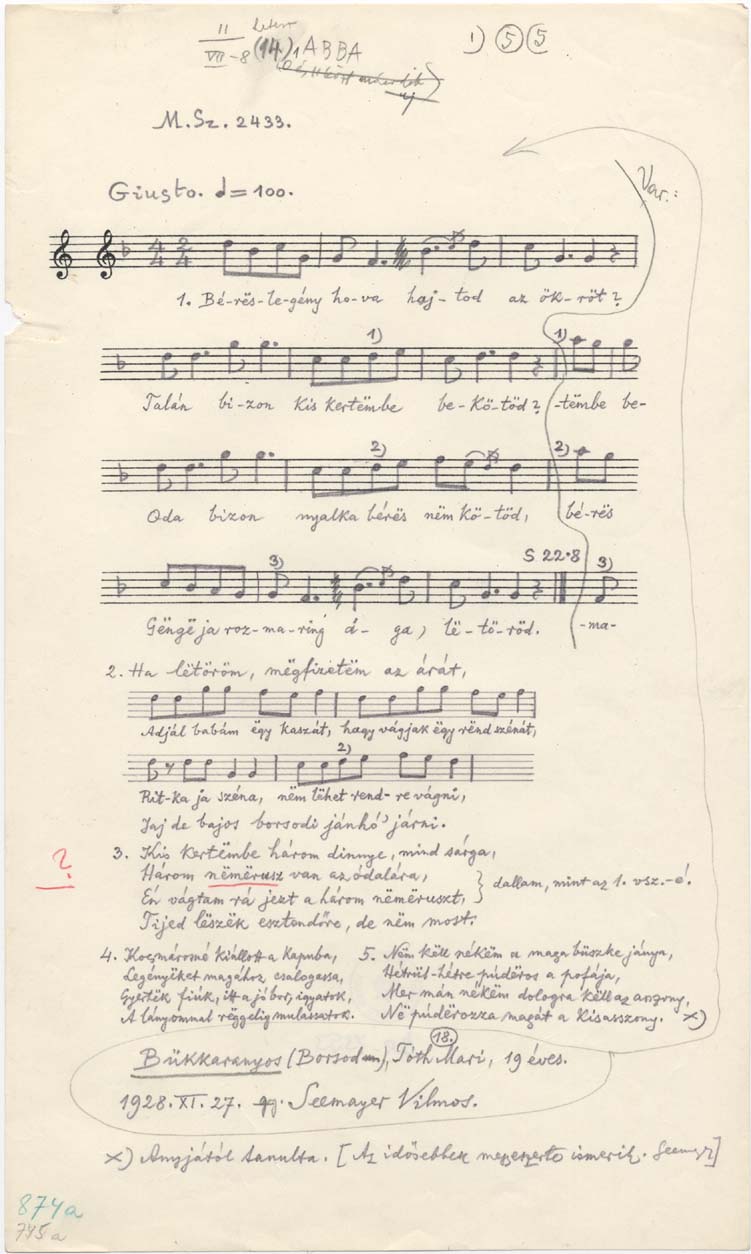 II
VII-8 (14), ABBA
1) 5 5
M. Sz. 2433.
Var.:
Giusto. = 100.
4/4 2/4
1. Bé-rës-le-gény ho-va haj-tod az ök-röt?
1) 1)
Talán bi-zon kis kertëmbe be-kö-töd? -tëmbe be-
2) 2)
Oda bizon nyalka bérës nëm kö-töd, bé-rës
3) S 22·8 3)
Gëngë ja roz-ma-ring á-ga, lë-tö-röd. -ma-
2. Ha lëtöröm, mëgfizetëm az árát,
Adjál babám ëgy kaszát, hagy vágjak ëgy rënd szénát,
2)
Rit-ka ja széna, nëm lëhet rend-re vágni,
Jaj de bajos borsodi jánhó' járni.
3. Kis kertëmbe három dinnye, mind sárga,
? Három nëmërusz van az ódalára,
Én vágtam rá jezt a három nëmëruszt, } dallam, mint az 1. vsz.-é.
Tijed lëszëk esztendőre, de nëm most.
4. Kocsmárosné kiállott a kapuba,
Legényëket magához csalogassa,
Gyertëk fiúk, itt a jó bor, igyatok,
A lányommal rëggelig mulassatok.
5. Nëm këll nékëm a maga büszke jánya,
Hétrül-hétre púdëros a pofája,
Mer mán nékëm dologra këll az asszony,
Në púdërozza magát a kisasszony. x)
Bükkaranyos (Borsod), Tóth Mari, 19 éves.
18.
1928. XI. 27. gy. Seemayer Vilmos.
x) Anyjától tanulta. [Az idősebbek ismerik. Seemayer]
874a
745a